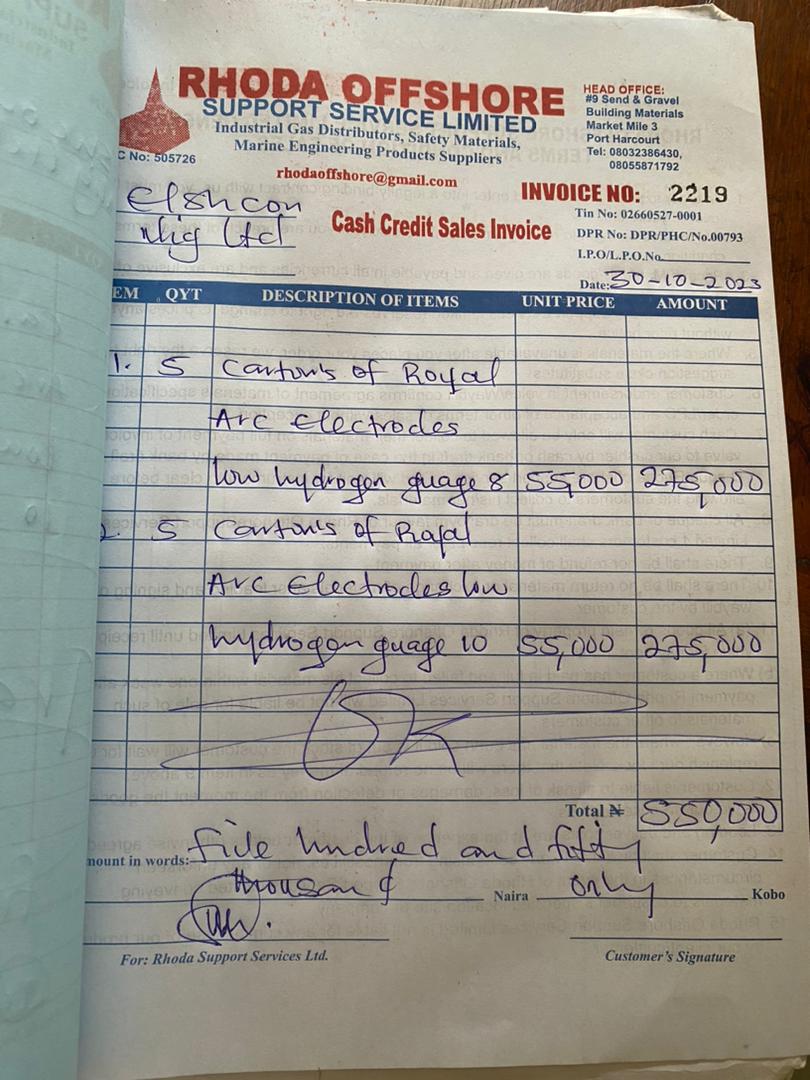 RHODA OFFSHORE
SUPPORT SERVICE LIMITED
Industrial Gas Distributors, Safety Materials,
Marine Engineering Products Suppliers
C No: 505726
rhodaoffshore@gmail.com
HEAD OFFICE:
#9 Send & Gravel
Building Materials
Market Mile 3
Port Harcourt
Tel: 08032386430,
08055871792
INVOICE NO: 2219
Elshcon
Nig Ltd
Cash Credit Sales Invoice
Tin No: 02660527-0001
DPR No: DPR/PHC/No.00793
I.P.O/L.P.O.No.
Date: 30-10-2023
EM QYT DESCRIPTION OF ITEMS UNIT PRICE AMOUNT
1. 5 Carton's of Royal
Arc Electrodes
low hydrogen guage 8 55,000 275,000
2. 5 Carton's of Royal
Arc Electrodes low
hydrogen guage 10 55,000 275,000
OK
Total ₦ 550,000
mount in words: five hundred and fifty
thousand Naira only Kobo
For: Rhoda Support Services Ltd.
Customer's Signature